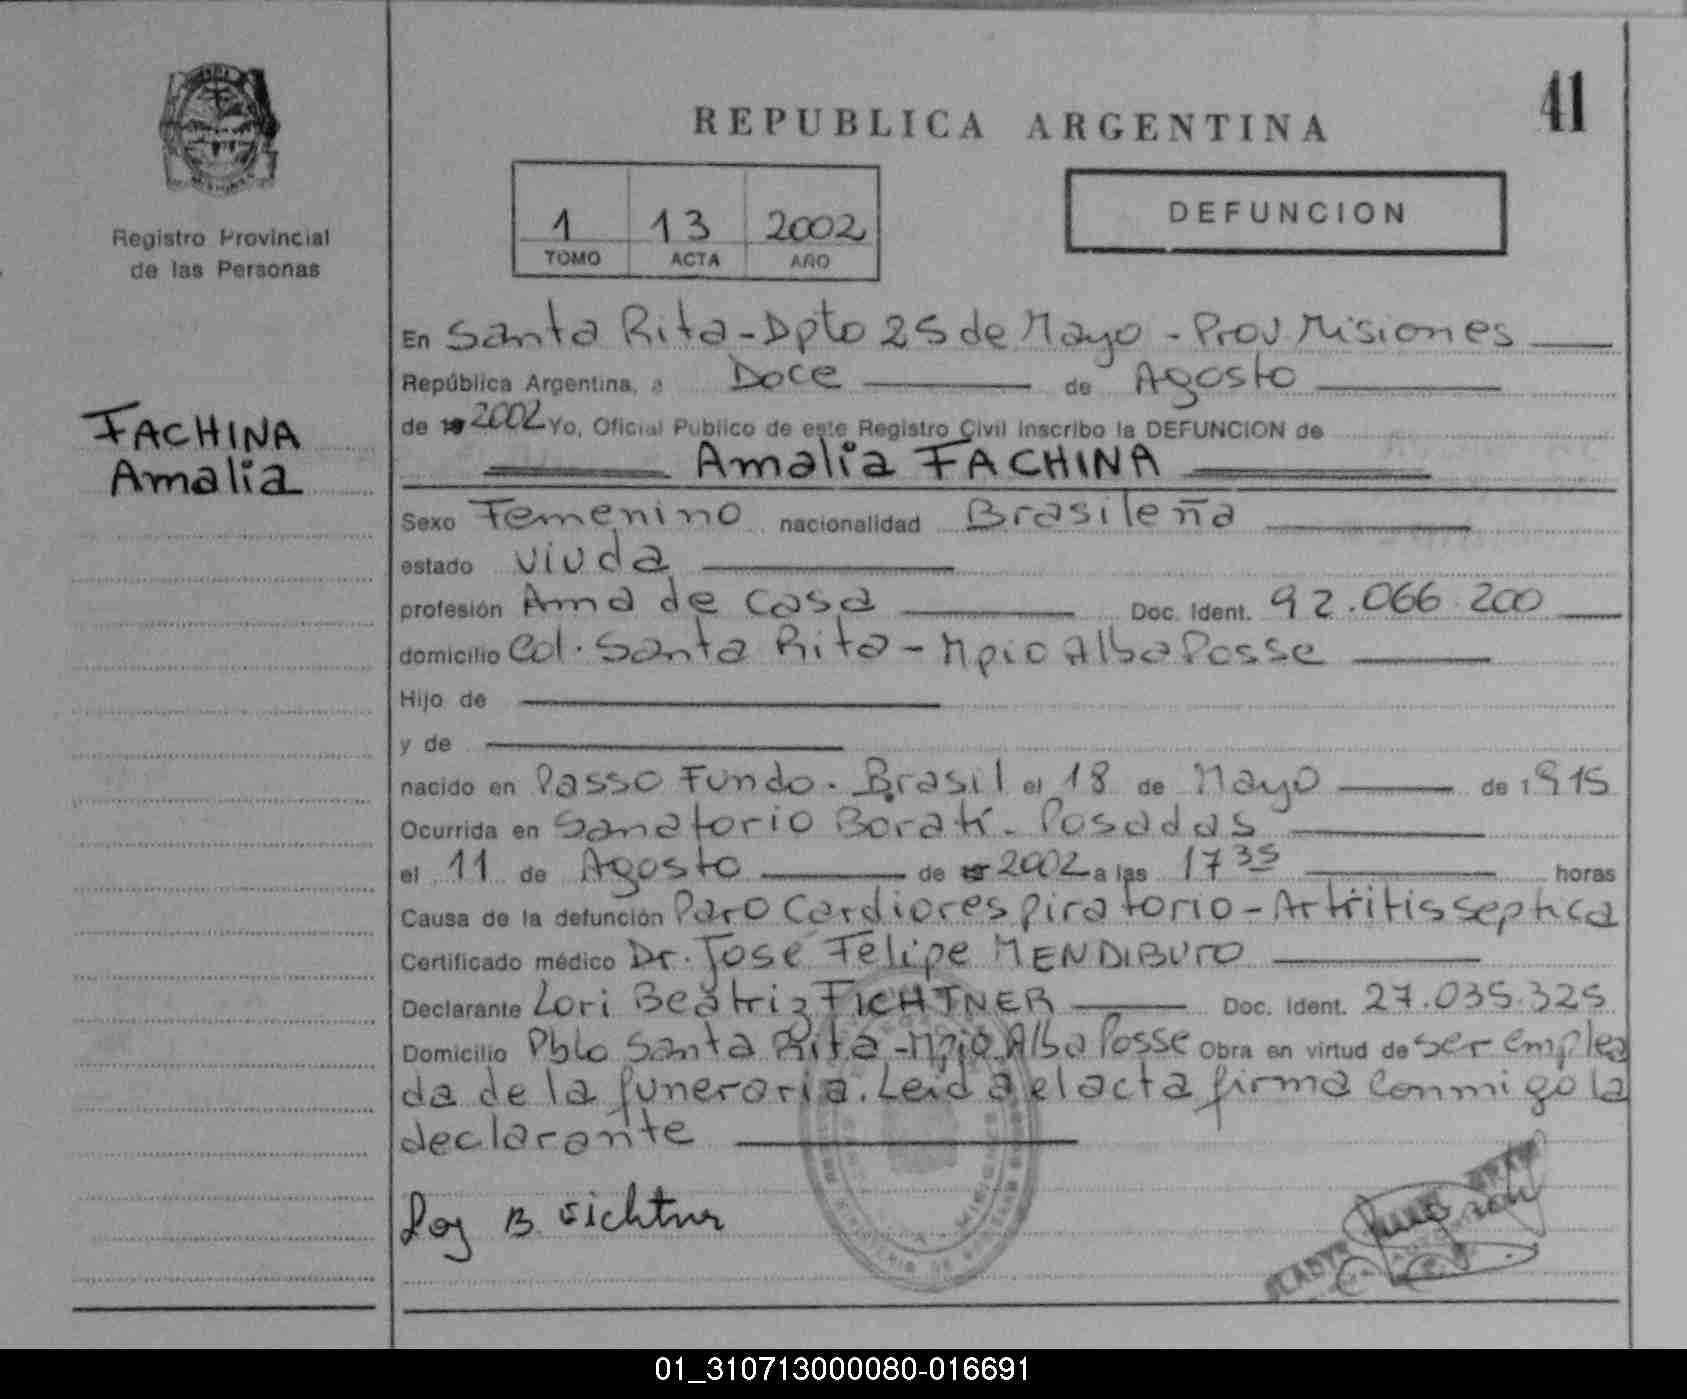 41
REPUBLICA ARGENTINA
Registro Provincial
de las Personas
1 13 2002
TOMO ACTA AÑO
DEFUNCION
FACHINA
Amalia
En Santa Rita - Dpto 25 de Mayo - Prov Misiones
República Argentina, a Doce de Agosto
de 19 2002 Yo, Oficial Público de este Registro Civil inscribo la DEFUNCION de
Amalia FACHINA
Sexo Femenino nacionalidad Brasileña
estado viuda
profesión Ama de casa Doc. Ident. 92.066.200
domicilio Col. Santa Rita - Mpio Alba Posse
Hijo de
y de
nacido en Passo Fundo. Brasil el 18 de Mayo de 1915
Ocurrida en Sanatorio Boratí - Posadas
el 11 de Agosto de 19 2002 a las 17 35 horas
Causa de la defunción Paro Cardiorespiratorio - Artritis septica
Certificado médico Dr. José Felipe MENDIBURO
Declarante Lori Beatriz FICHTNER Doc. Ident. 27.035.325
Domicilio Pblo Santa Rita - Mpio Alba Posse Obra en virtud de ser emplea
da de la funeraria. Leida el acta firma conmigo la
declarante
B. Fichtner
01_310713000080-016691